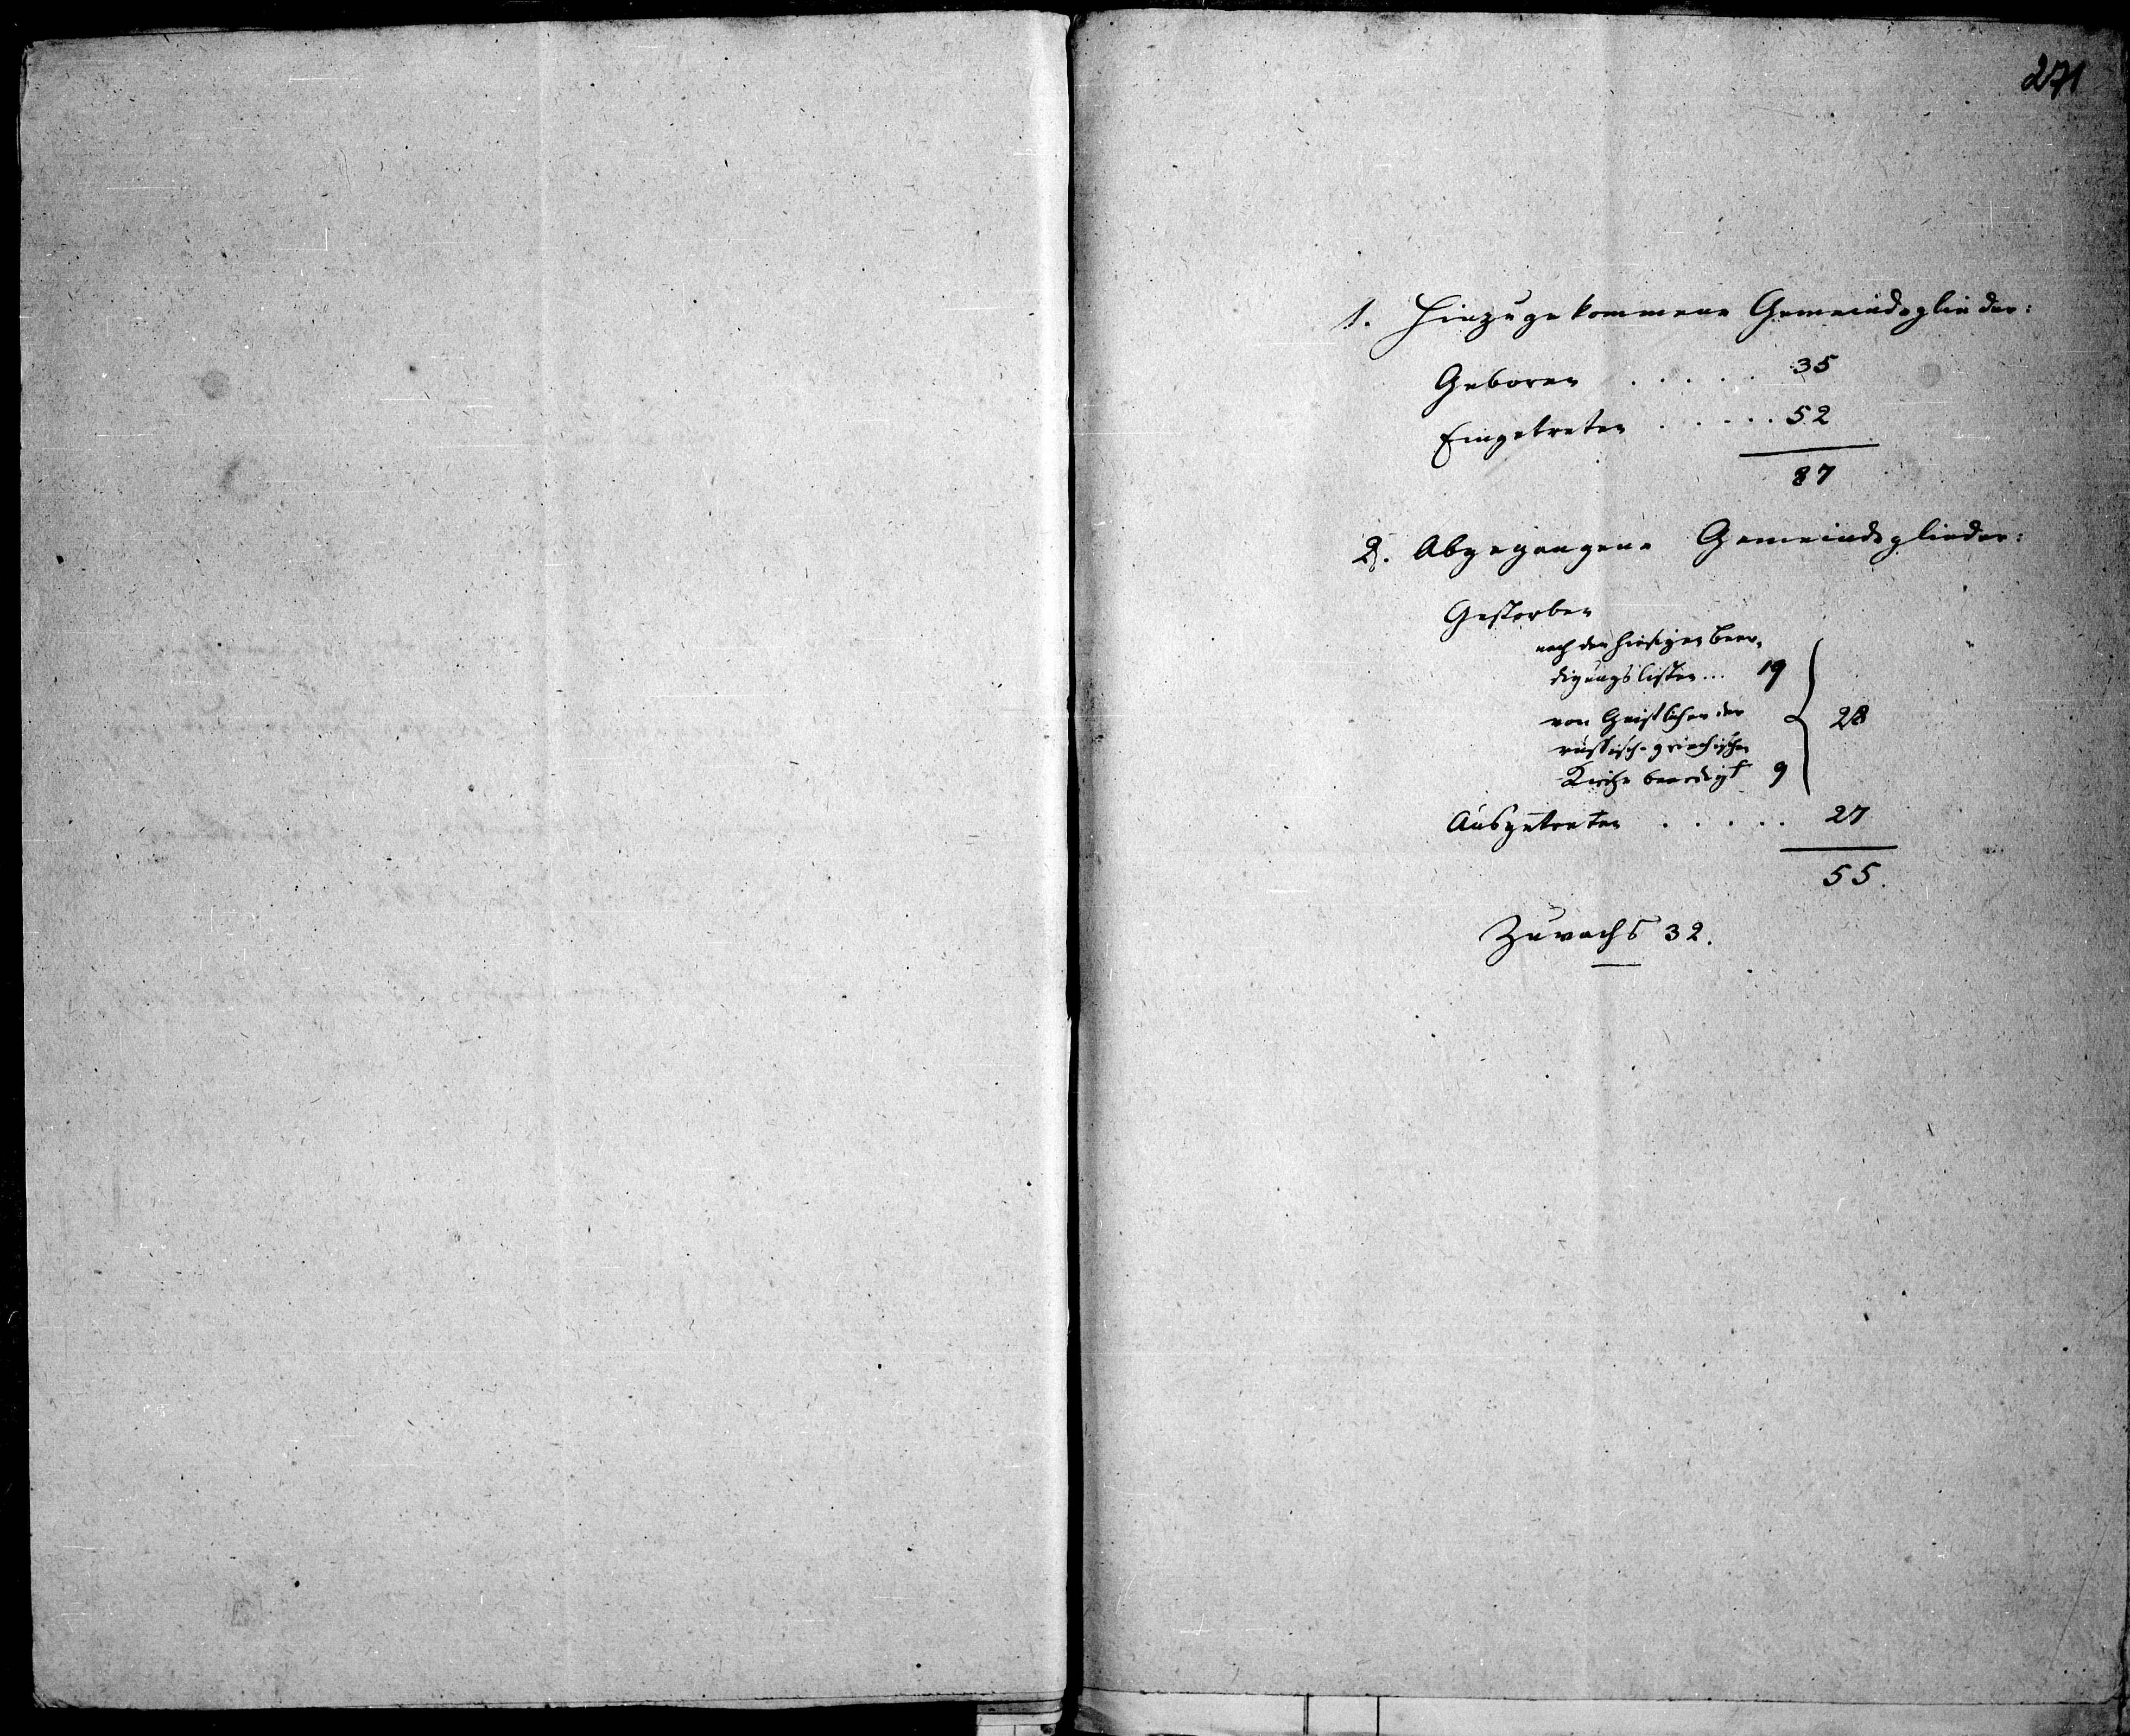 271
1. Hinzugekommene Gemeindeglieder:
Geboren . . . . . 35
Eingetreten . . . . . 52
87
2. Abgegangene Gemeindeglieder:
Gestorben
nach den hiesigen Beer-
digungslisten... 19
von Geistlichen der
russisch-griechischen
Kirche beerdigt 9
28
Ausgetreten . . . . . 27
55.
Zuwachs 32.